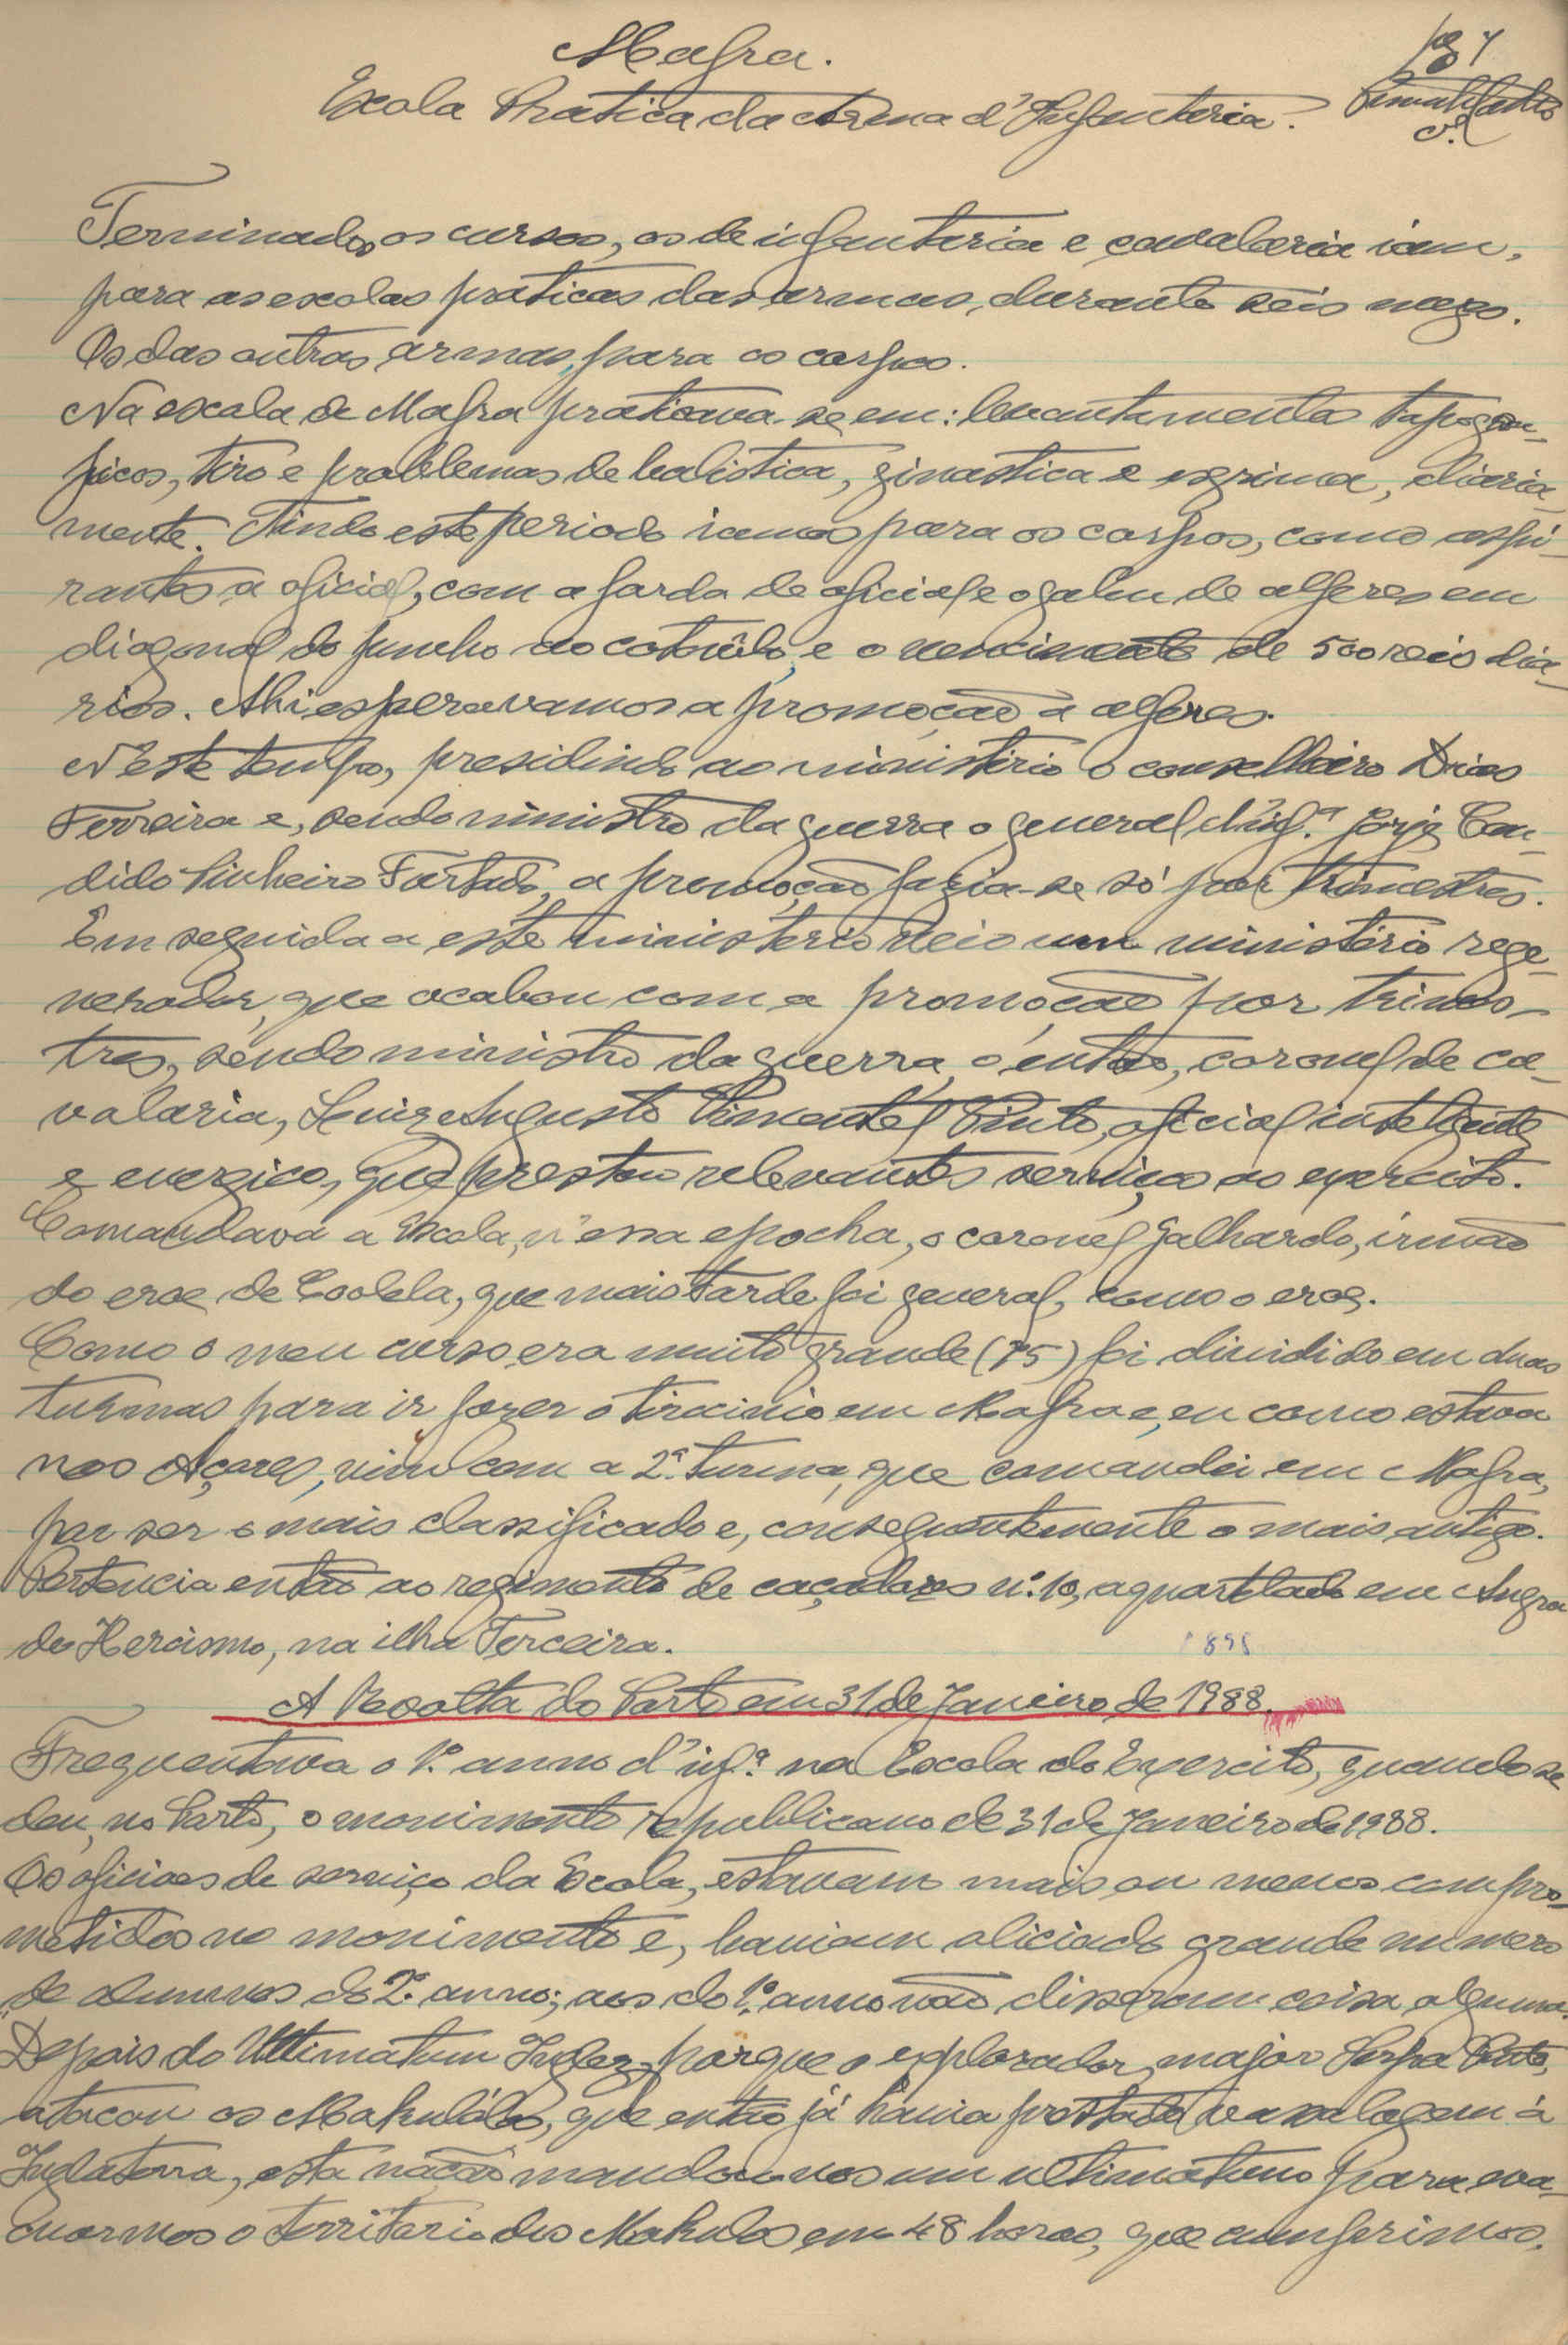 Mafra.
Escola Pratica da Arma d'Infanteria.
Terminados os cursos, os de infanteria e cavalaria iam,
para as escolas praticas das armas, durante seis mezes.
Os das outras armas, para os corpos.
Na escola de Mafra praticava-se em: levantamentos topogra-
ficos, tiro e problemas de balistica, ginastica e esgrima, diaria-
mente. Findo este periodo iamos para os corpos, como aspi-
rantes a oficial, com a farda de oficial e o galão de alferes em
diagonal do punho ao cotovêlo, e o vencimento de 500 reis dia-
rios. Ahi esperavamos a promoção a alferes.
N'este tempo, presidindo ao ministerio o conselheiro Dias
Ferreira e, sendo ministro da guerra o general d'inf.ª Jorje Can-
dido Pinheiro Furtado, a promoção fazia-se só por trimestres.
Em seguida a este ministerio veio um ministério rege-
nerador, que acabou com a promoção por trimes-
tres, sendo ministro da guerra, o então, coronel de ca-
valaria, Luiz Augusto Pimentel Pinto, oficial inteligente
e energico, que prestou relevantes serviços ao exercito.
Comandava a Escola, n'essa epocha, o coronel Galhardo, irmão
do eroe de Coolela, que mais tarde foi general, como o eroe.
Como o meu curso era muito grande (75) foi dividido em duas
turmas para ir fazer o tirocinio em Mafra e, eu como estava
nos Açores, vim com a 2.ª turma, que comandei em Mafra,
por ser o mais classificado e, consequentemente o mais antigo.
Pertencia então ao regimento de caçadores n.º 10, aquartelado em Angra
do Heroismo, na ilha Terceira.
A Revolta do Porto em 31 de Janeiro de 1988.
Frequentava o 1.º anno d'inf.ª na Escola do Exercito, quando se
deu, no Porto, o movimento republicano de 31 de Janeiro de 1988.
Os oficiaes de serviço da Escola, estavam mais ou menos compro-
metidos no movimento e, haviam aliciado grande numero
de alumnos do 2.º anno; aos do 1.º anno não disseram coisa alguma.
Depois do Ultimatum Inglez, porque o explorador, major Serpa Pinto,
atacou os Makulólos, que então já havia prestado vassalagem á
Inglaterra, esta nação mandou-nos um ultimatum para eva-
cuarmos o territorio dos Makulos em 48 horas, que cumprimos.